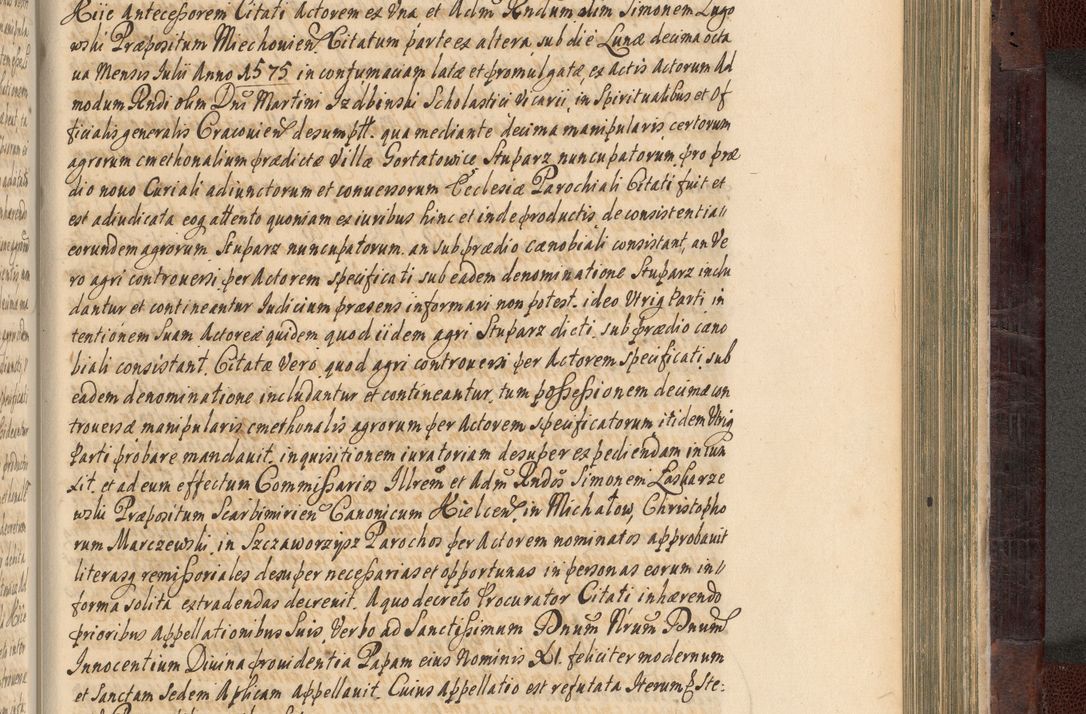 Kije Antecessorem Citati Actorem ex Vna et Adm̃ Rndum olim Simonem Lugo
wski Præpositum Miechouien̄ Citatum parte ex altera sub die Lunæ decima octa
ua Mensis Iulii Anno 1575 in contumaciam latæ et promulgatæ ex Actis Actorum Ad
modum Rndi olim Dnī Martini Izdbinski Scholastici Vicarii in Spiritualibus et Of
ficialis generalis Cracouien̄ desumptt. qua mediante decima manipularis certorum
agrorum cmethonalium prædictæ Villæ Gortatowice Stuparz nuncupatorum pro præ
dio nouo Curiali adiunctorum et conuersorum Ecclesiæ Parochiali Citati fuit et
est adiudicata eoq attento quoniam ex iuribus hinc et inde productis de consistentia
eorundem agrorum Stuparz nuncupatorum. an sub prædio cænobiali consistant, an Ve
ro agri controuersi per Actorem specificati sub eadem denominatione Stuparz inclu
dantur et contineantur Iudicium præsens informari non potest. ideo Vtriq Parti in
tentionem suam Actoreæ quidem quod iidem agri Stuparz dicti sub prædio cæno
biali consistant, Citatæ Vero quod agri controuersi per Actorem specificati sub
eadem denominatione includantur et contineantur, tum possessionem decimæ con
trouersæ manipularis cmethonalis agrorum per Actorem specificatorum itidem Vtriq
Parti probare mandauit, inquisitionem iuratoriam desuper expediendam iniun
xit, et ad eum effectum Commissarios Illrem et Adm̃ Rndos Simonem Laskarze
wski Præpositum Scarbimirien̄ Canonicum Kielcen̄ in Michałow, Christopho
rum Marczewski in Szczaworzysz Parochos per Actorem nominatos approbauit
literasq remissoriales desuper necessarias et opportunas in personas eorum in
forma solita extradendas decreuit. A quo decreto Procurator Citati inhærendo
prioribus Appellationibus suis, Verbo ad Sanctissimum Dnum Nrum Dnum
Innocentium Diuina prouidentia Papam eius Nominis XI. feliciter modernum
et Sanctam Sedem Aplicam appellauit. Cuius Appellatio est refutata Iterum & Ste: